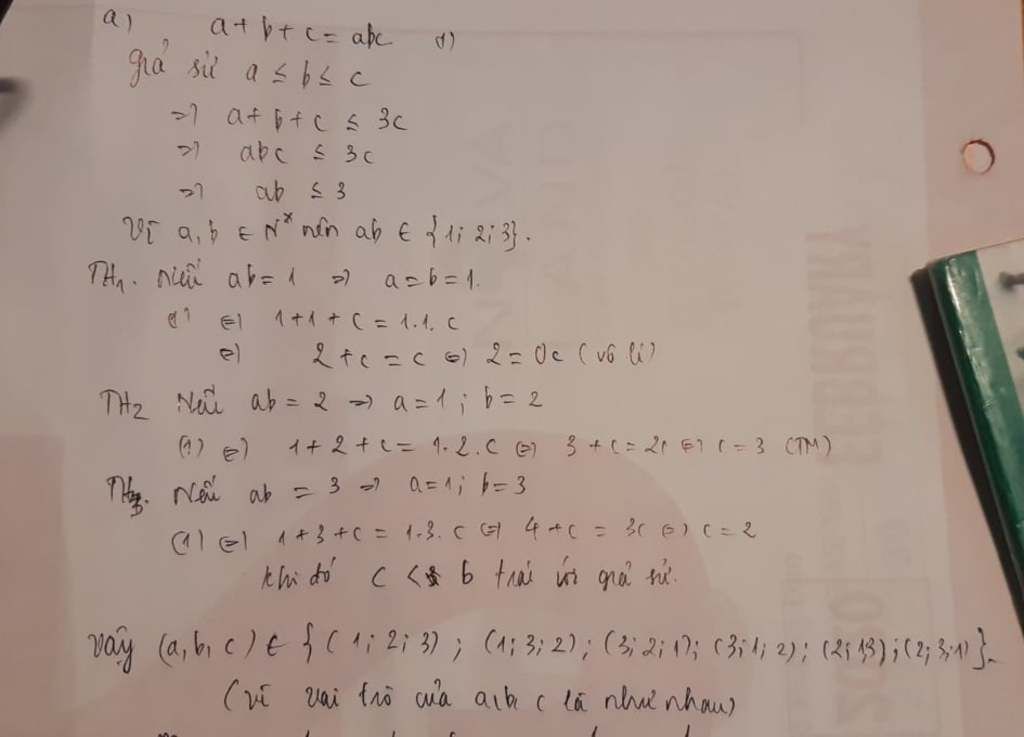 a) a + b + c = abc (1)
giả sử a ≤ b ≤ c
=> a + b + c ≤ 3c
=> abc ≤ 3c
=> ab ≤ 3
Vì a, b ∈ N* nên ab ∈ {1; 2; 3}.
TH1. Nếu ab = 1 => a = b = 1.
(1) <=> 1 + 1 + c = 1.1.c
<=> 2 + c = c <=> 2 = 0c (vô lí)
TH2 Nếu ab = 2 => a = 1; b = 2
(1) <=> 1 + 2 + c = 1.2.c <=> 3 + c = 2c <=> c = 3 (TM)
TH3. Nếu ab = 3 => a = 1; b = 3
(1) <=> 1 + 3 + c = 1.3.c <=> 4 + c = 3c <=> c = 2
khi đó c < b trái với giả sử.
Vậy (a, b, c) ∈ {(1; 2; 3); (1; 3; 2); (3; 2; 1); (3; 1; 2); (2; 1; 3); (2; 3; 1)}.
(vì vai trò của a, b, c là như nhau)